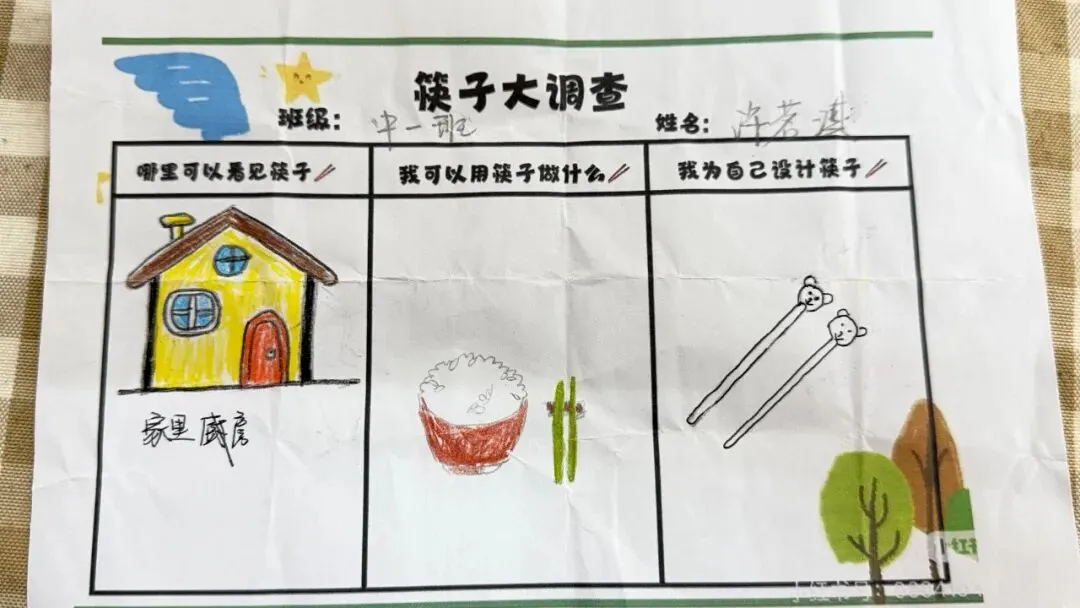 筷子大调查
班级: 中一班 姓名: 许若
哪里可以看见筷子
我可以用筷子做什么
我为自己设计筷子
家里厨房